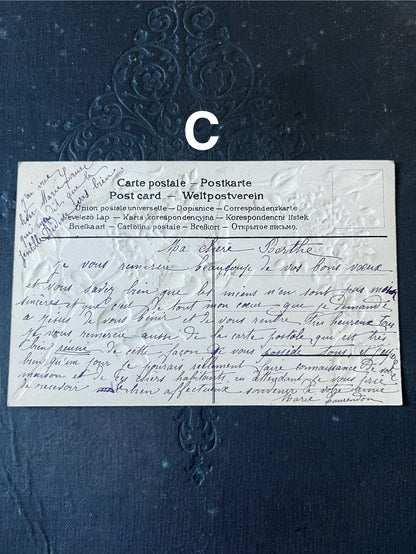 C
Carte postale — Postkarte
Post card — Weltpostverein
Union postale universelle — Dopisnice — Correspondenzkarte
Levelezo Lap — Карта korespondencyjna — Korespondencni listek
Brefkaart — Cartolina postale — Brefkort — Открытое письмо.
J'ai vue
Marie
bien
Ma chère Berthe
Je vous remercie beaucoup de vos bons vœux
et vous savez bien que les miens n'en sont pas moins
sincères et que c'est de tout mon cœur que je demande
a Jésus de vous bénir et de vous rendre très heureux tous
Je vous remercie aussi de la carte postale qui est très
bien de cette façon je vous possède tous
bien qu'un jour je pourais réelement faire connaissance de votre
maison et de ces chers habitants, en attendant je vous prie
de recevoir bien affectueux souvenir de votre amie
Marie